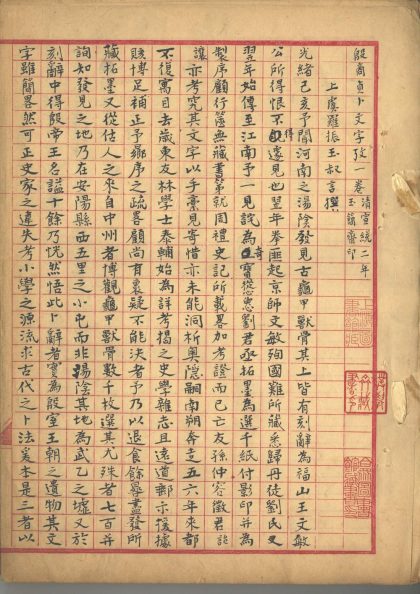 殷商貞卜文字攷一卷 清宣統二年 玉簡齋印
上虞羅振玉叔言撰
光緒己亥予聞河南之湯陰發見古龜甲獸骨其上皆有刻辭為福山王文敏
公所得恨不得遽見也翌年拳匪起京師文敏殉國難所藏悉歸丹徒劉氏又
翌年始傳至江南予一見詫為奇寶慫恿劉君亟拓墨為選千紙付影印并為
製序顧行篋無藏書第就周禮史記所載畧加考證而已亡友孫仲容徵君詒
讓亦考究其文字以手稾見寄惜亦未能洞析奧隱嗣南朔奔走五六年來都
不復寓目去歲東友林學士泰輔始為詳考揭之史學雜志且遠道郵示援據
賅博足補正予曏序之疏畧顧尚有褱疑不能決者予乃以退食餘晷盡發所
藏拓墨又從估人之來自中州者博觀龜甲獸骨數千枚選其尤殊者七百并
詢知發見之地乃在安陽縣西五里之小屯而非湯陰其地為武乙之墟又於
刻辭中得殷帝王名諡十餘乃恍然悟此卜辭者實為殷室王朝之遺物其文
字雖簡畧然可正史家之違失考小學之源流求古代之卜法爰本是三者以